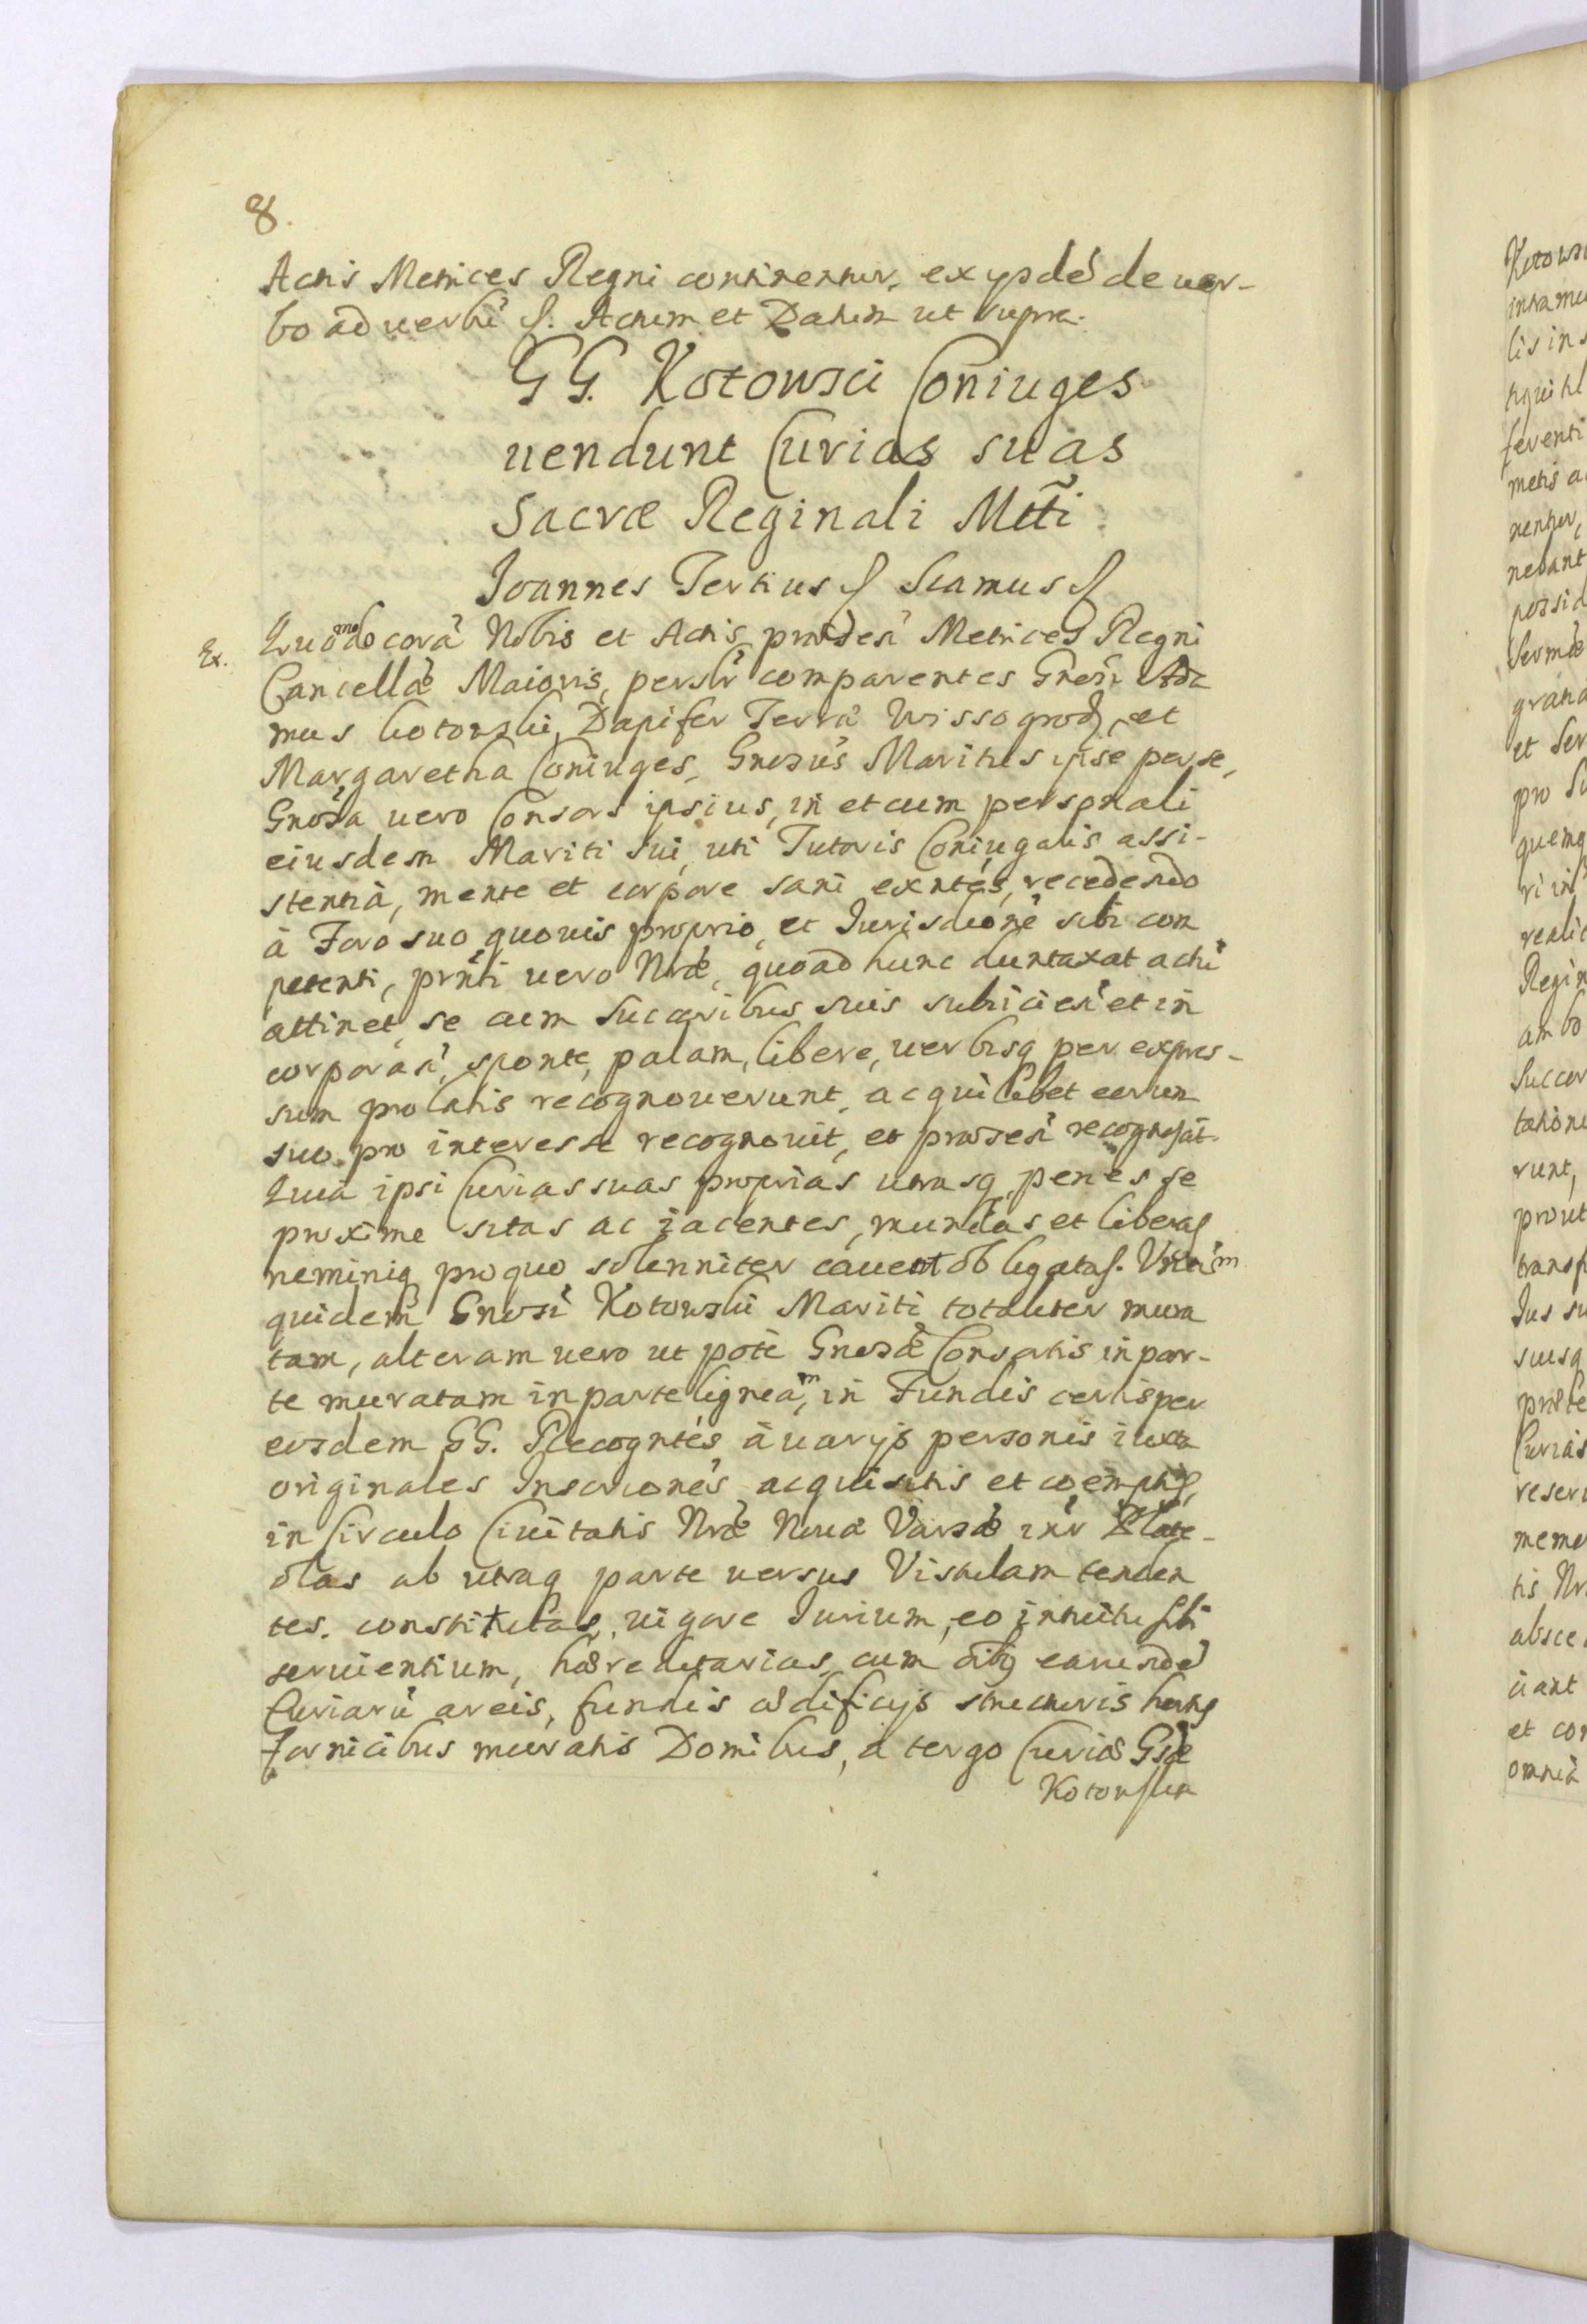 8.
Actis Metrices Regni continentur, ex ijsdē de ver-
bo ad verbū ſ. Actum et Datum ut supra.
GG. Kotowscĳ Coniuges
vendunt Curias suas
Sacræ Reginali Mtti
Joannes Tertius ſ Scamus ſ
Ex. Quōmodo corā Nobis et Actis præsēn Metrices Regni
Cancellæ Maioris, persłr comparentes Gnesi Ada
mus Kotowski, Dapifer Terræ Wissogrod, et
Margaretha Coniuges, Gnosus Maritus ipse per se,
Gnosa vero Consors ipsius, in et cum personali
eiusdem Mariti sui, uti Tutoris Coniugalis assi-
stentiâ, mente et corpore sani exñtes, recedendo
à Foro suo quovis proprio, et Jurisdictionē sibi com
petenti, prñti vero Nræ, quoad hunc duntaxat actū
attinet, se cum Succoribus suis subiicień et in
corporań, sponte, palam, libere, verbisq per expres-
sum prolatis recognoverunt, ac quilibet eorum
suo pro interesse recognovit, et præsen recognośt
Quia ipsi Curias suas proprias utrasq penes se
proxime sitas ac iacentes, mundas et liberas
neminiq pro quo solenniter cavent obligatas. Unam
quidem Gnosi Kotowski Mariti totaliter mura
tam, alteram vero ut pote Gnosæ Consortis in par-
te muratam in parte ligneam, in Fundis certis per
eosdem GG. Recogntes à varijs personis iuxta
originales Inscriones acquisitis et coemptis,
in Circulo Civitatis Nræ Novæ Varsæ inr Plate-
olas ab utraq parte versus Vistulam tenden
tes. constitutas, vigore Jurium, eo intuitu sibi
servientium, hæreditarias cum oibq earundē
Curiarū areis, fundis ædificijs structuris hortis
Fornicibus muratis Domibus, a tergo Curiæ Gsæ